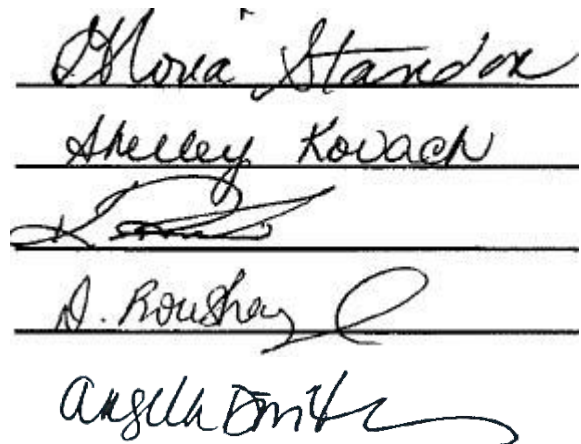 Gloria Standon
Shelley Kovach
D. Roushay
Angella Smith